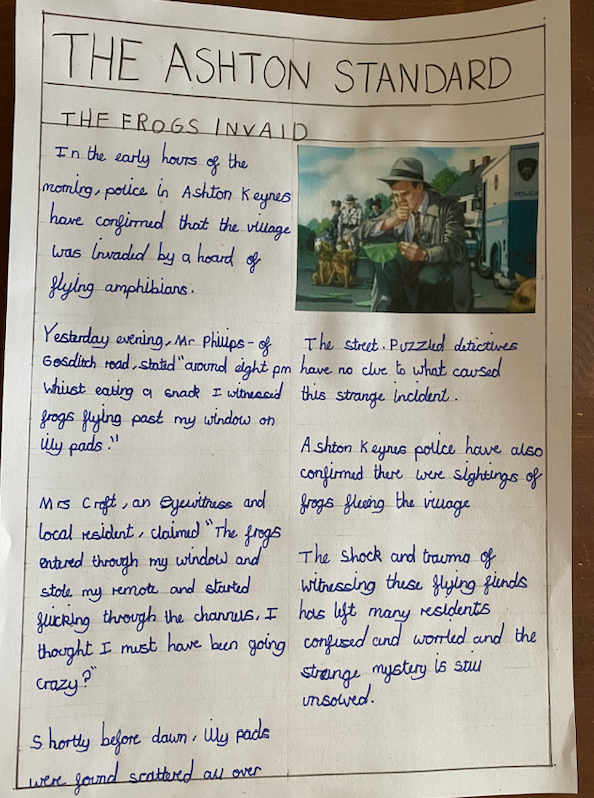 THE ASHTON STANDARD
THE FROGS INVAID
In the early hours of the
morning, police in Ashton Keynes
have confirmed that the village
was invaded by a hoard of
flying amphibians.
Yesterday evening, Mr Philips - of
Gosditch road, stated "around eight pm
whilst eating a snack I witnessed
frogs flying past my window on
lily pads."
Mrs Croft, an eyewitness and
local resident, claimed "The frogs
entered through my window and
stole my remote and started
flicking through the channels. I
thought I must have been going
crazy?"
Shortly before dawn, lily pads
were found scattered all over
POLICE
The street. Puzzled detectives
have no clue to what caused
this strange incident.
Ashton Keynes police have also
confirmed there were sightings of
frogs fleeing the village
The shock and trauma of
witnessing these flying fiends
has left many residents
confused and worried and the
strange mystery is still
unsolved.